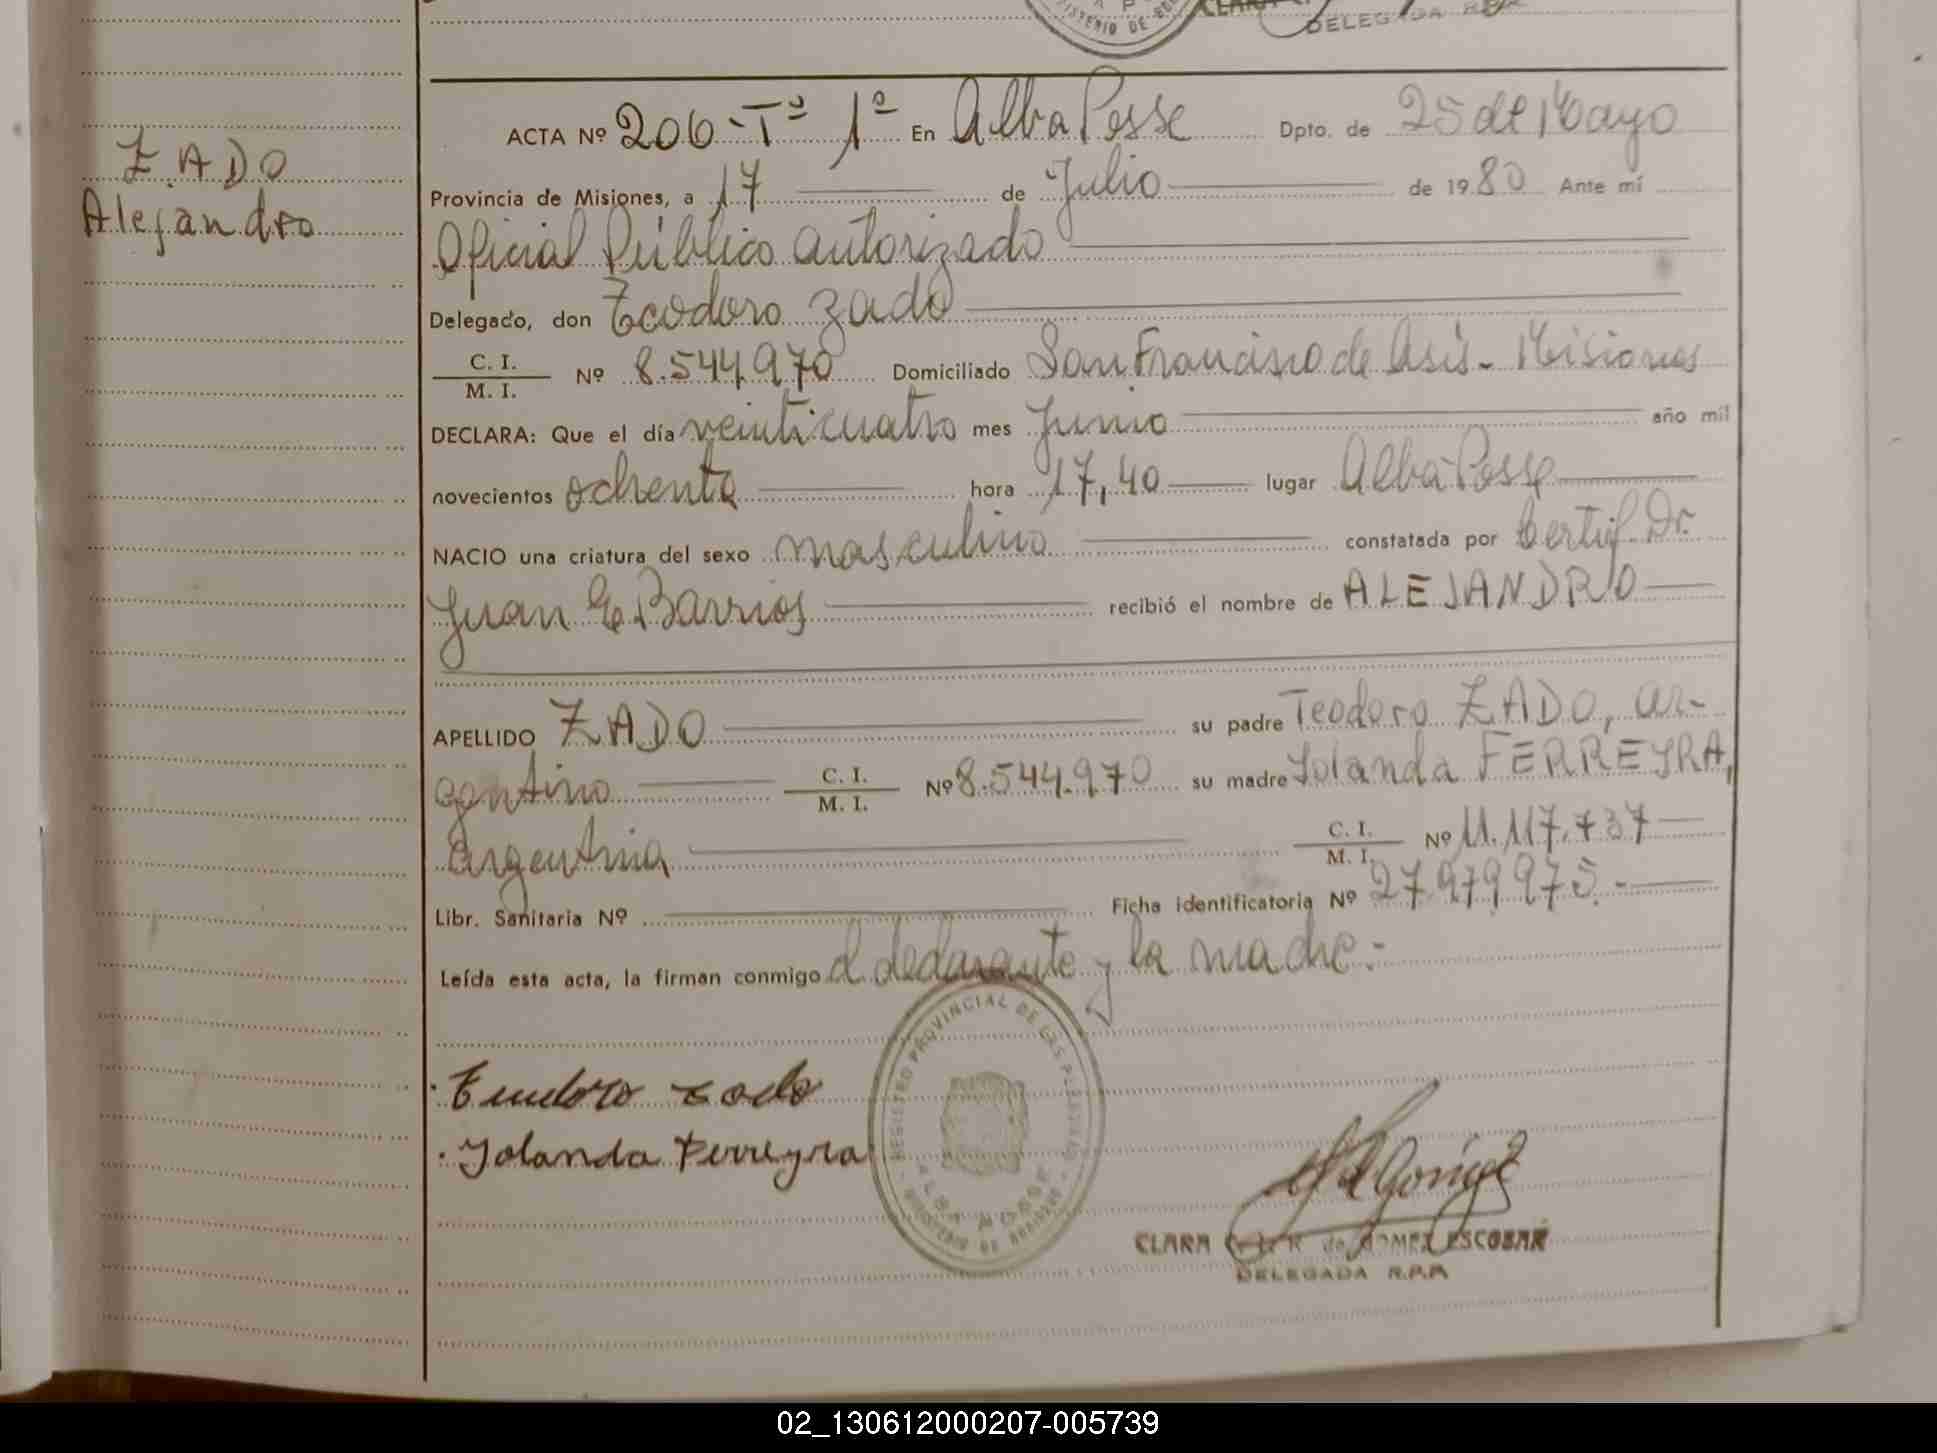 DELEGADA R.P.P.
ZADO
Alejandro
ACTA Nº 206-Tº 1º En Alba Posse Dpto. de 25 de Mayo
Provincia de Misiones, a 17 de Julio de 1980 Ante mí
Oficial Público autorizado
Delegado, don Teodoro Zado
C. I.
M. I. Nº 8.544.970 Domiciliado San Francisco de Asís - Misiones
DECLARA: Que el día veinticuatro mes Junio año mil
novecientos ochenta hora 17,40 lugar Alba Posse
NACIO una criatura del sexo masculino constatada por Certif. Dr.
Juan E. Barrios recibió el nombre de ALEJANDRO
APELLIDO ZADO su padre Teodoro ZADO, ar-
gentino C. I.
M. I. Nº 8.544.970 su madre Yolanda FERREYRA,
argentina C. I.
M. I. Nº 11.117.737
Libr. Sanitaria Nº Ficha identificatoria Nº 27.979.975.-
Leída esta acta, la firman conmigo el declarante y la madre.-
REGISTRO PROVINCIAL DE LAS PERSONAS
ALBA POSSE
MINISTERIO DE GOBIERNO
Teodoro Zado
Yolanda Ferreyra
CLARA de GOMEZ ESCOBAR
DELEGADA R.P.P.
02_130612000207-005739